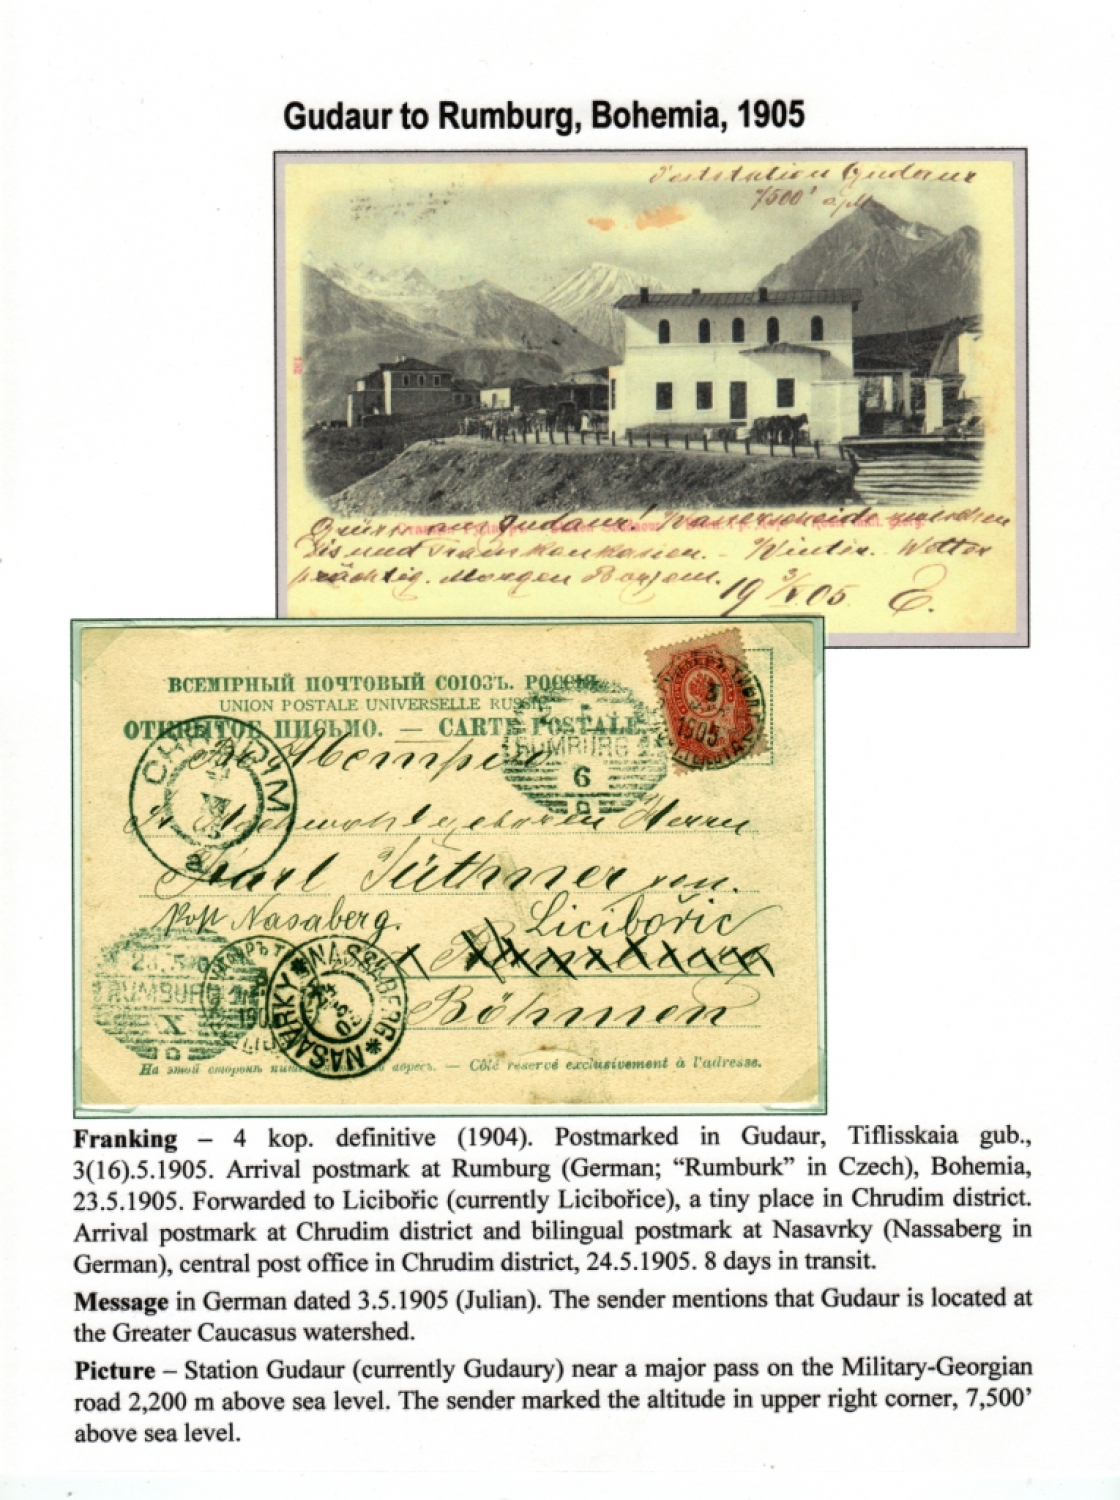 Gudaur to Rumburg, Bohemia, 1905
Poststation Gudaur
7500' a/M
132
Gudaur! Wasserscheide zwischen
Cis und Transkaukasien. - Winter. Wetter
prächtig. Morgen Borjom.
19 3/V 05. E.
ВСЕМIРНЫЙ ПОЧТОВЫЙ СОЮЗЪ. РОССIЯ.
UNION POSTALE UNIVERSELLE RUSSIE
ОТКРЫТОЕ ПИСЬМО. — CARTE POSTALE
CHRUDIM
a
RUMBURG
6
3
1905
Hochwohlgeboren Herrn
Karl Jüthner sen.
Post Nasaberg. Licibořic
Rumburg
Böhmen
23.5.0
RUMBURG
X
190
NASSABERG * NASAVRKY *
На этой сторонѣ адресъ. — Côté réservé exclusivement à l'adresse.
Franking – 4 kop. definitive (1904). Postmarked in Gudaur, Tiflisskaia gub.,
3(16).5.1905. Arrival postmark at Rumburg (German; “Rumburk” in Czech), Bohemia,
23.5.1905. Forwarded to Licibořic (currently Licibořice), a tiny place in Chrudim district.
Arrival postmark at Chrudim district and bilingual postmark at Nasavrky (Nassaberg in
German), central post office in Chrudim district, 24.5.1905. 8 days in transit.
Message in German dated 3.5.1905 (Julian). The sender mentions that Gudaur is located at
the Greater Caucasus watershed.
Picture – Station Gudaur (currently Gudaury) near a major pass on the Military-Georgian
road 2,200 m above sea level. The sender marked the altitude in upper right corner, 7,500’
above sea level.